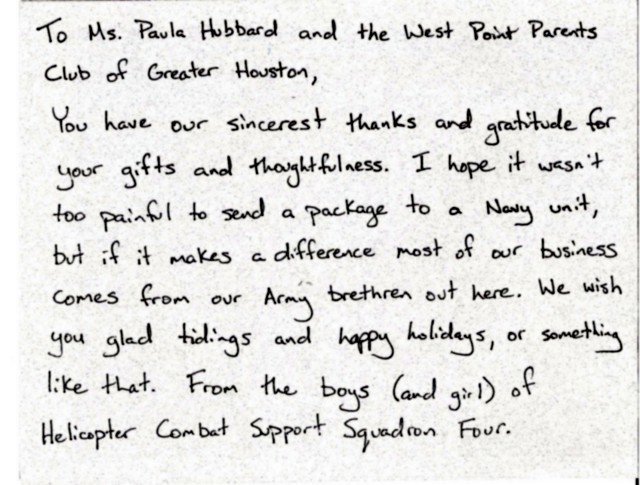 To Ms. Paula Hubbard and the West Point Parents
Club of Greater Houston,
You have our sincerest thanks and gratitude for
your gifts and thoughtfulness. I hope it wasn't
too painful to send a package to a Navy unit,
but if it makes a difference most of our business
comes from our Army brethren out here. We wish
you glad tidings and happy holidays, or something
like that. From the boys (and girl) of
Helicopter Combat Support Squadron Four.